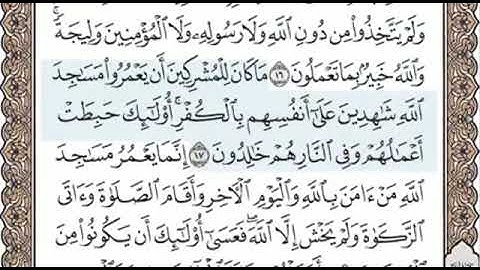 وَلَمْ يَتَّخِذُوا۟ مِن دُونِ ٱللَّهِ وَلَا رَسُولِهِۦ وَلَا ٱلْمُؤْمِنِينَ وَلِيجَةً ۚ
وَٱللَّهُ خَبِيرٌۢ بِمَا تَعْمَلُونَ ١٦ مَا كَانَ لِلْمُشْرِكِينَ أَن يَعْمُرُوا۟ مَسَـٰجِدَ
ٱللَّهِ شَـٰهِدِينَ عَلَىٰٓ أَنفُسِهِم بِٱلْكُفْرِ ۚ أُو۟لَـٰٓئِكَ حَبِطَتْ
أَعْمَـٰلُهُمْ وَفِى ٱلنَّارِ هُمْ خَـٰلِدُونَ ١٧ إِنَّمَا يَعْمُرُ مَسَـٰجِدَ
ٱللَّهِ مَنْ ءَامَنَ بِٱللَّهِ وَٱلْيَوْمِ ٱلْـَٔاخِرِ وَأَقَامَ ٱلصَّلَوٰةَ وَءَاتَى
ٱلزَّكَوٰةَ وَلَمْ يَخْشَ إِلَّا ٱللَّهَ ۖ فَعَسَىٰٓ أُو۟لَـٰٓئِكَ أَن يَكُونُوا۟ مِنَ